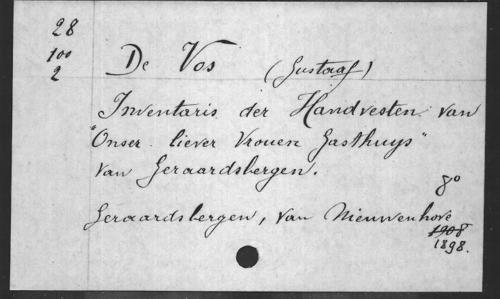 28
100
2
De Vos (Gustaaf)
Inventaris der Handvesten van
"Onser liever Vrouen Gasthuys"
van Geraardsbergen.
8°
Geraardsbergen, Van Nieuwenhove
1908
1898.